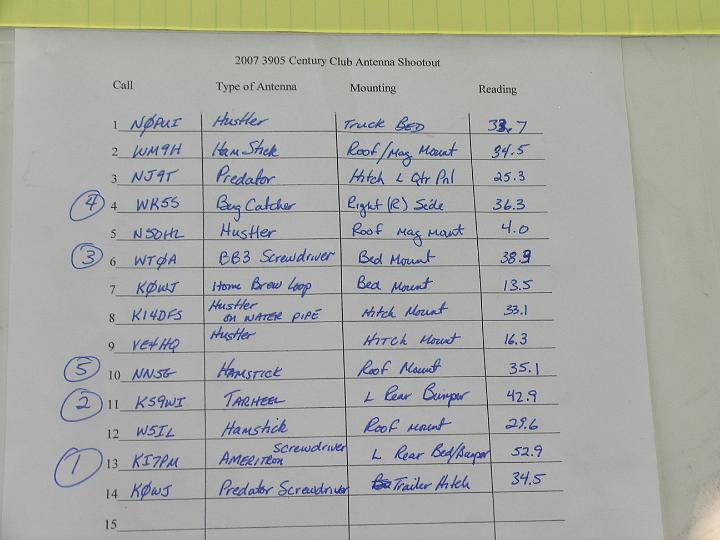 2007 3905 Century Club Antenna Shootout
Call Type of Antenna Mounting Reading
1 NØPUI Hustler Truck BED 33.7
2 WM9H HamStick Roof/Mag Mount 34.5
3 NJ9T Predator Hitch L Qtr Pnl 25.3
④ 4 WK5S Bug Catcher Right (R) Side 36.3
5 N5OHL Hustler Roof Mag Mount 4.0
③ 6 WTØA BB3 Screwdriver Bed Mount 38.9
7 KØWJ Home Brew Loop Bed Mount 13.5
8 KI4DFS Hustler ON WATER PIPE Hitch Mount 33.1
9 VE4HQ Hustler HITCH Mount 16.3
⑤ 10 NN5G HAMSTICK Roof Mount 35.1
② 11 KS9WI TARHEEL L Rear Bumper 42.9
12 W5IL Hamstick Roof Mount 29.6
① 13 KI7PM AMERITRON Screwdriver L Rear Bed/Bumper 52.9
14 KØWJ Predator Screwdriver Trailer Hitch 34.5
15